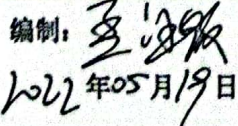 编制：
2022年05月19日